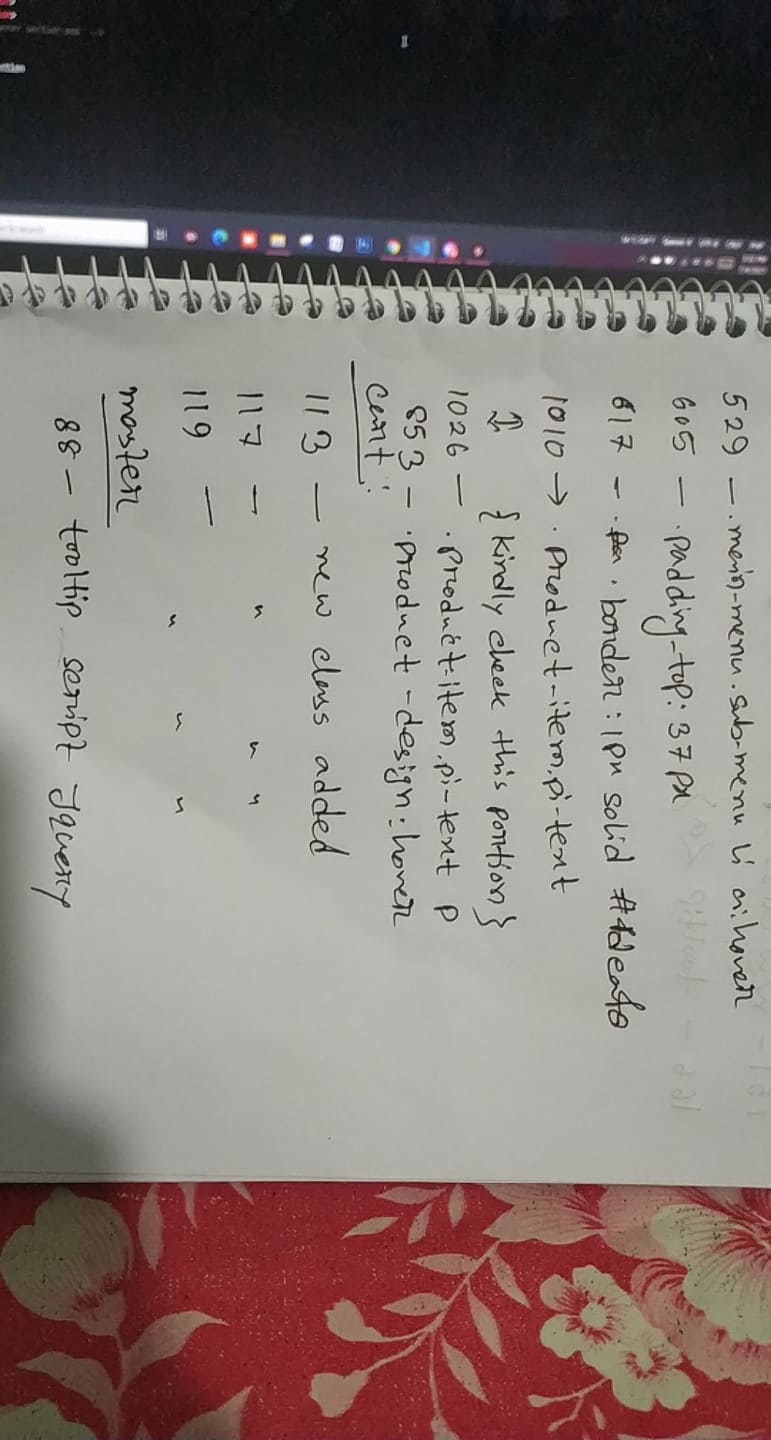 529 — .main-menu.sub-menu li a:hover
605 — .padding-top: 37px
617 — . border: 1px solid
1010 → . Product-item.pi-text
↕ {Kindly check this portion}
1026 — .product-item.pi-text p
853 — .product-design:hover
cart:
113 — new class added
117 — " " "
119 —
" " "
master
88 — tooltip script Jquery